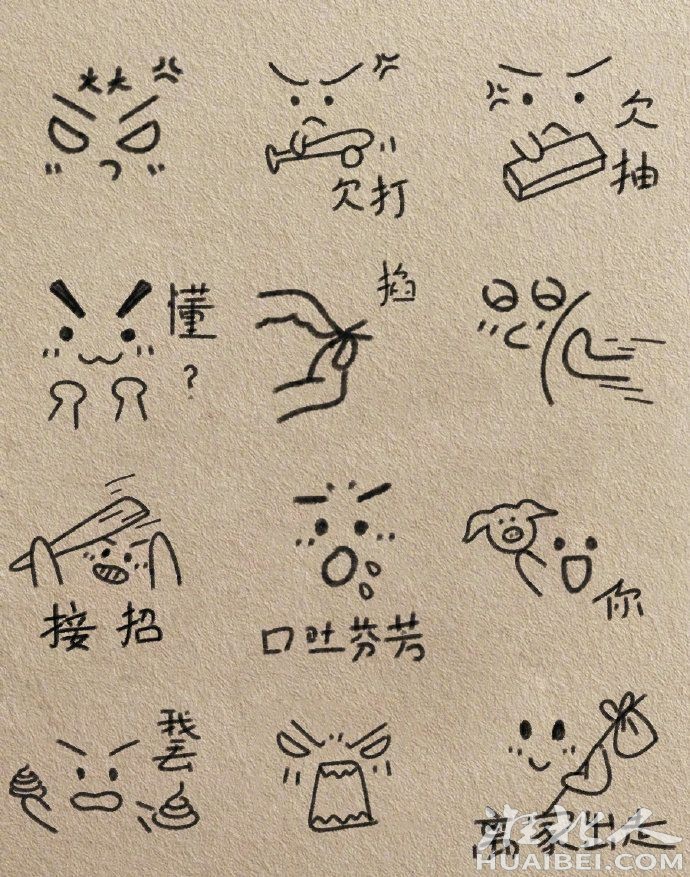 欠打
欠
抽
懂
?
掐
接招
口吐芬芳
你
我
丢
离家出走
淮北人
HUAIBEI.COM